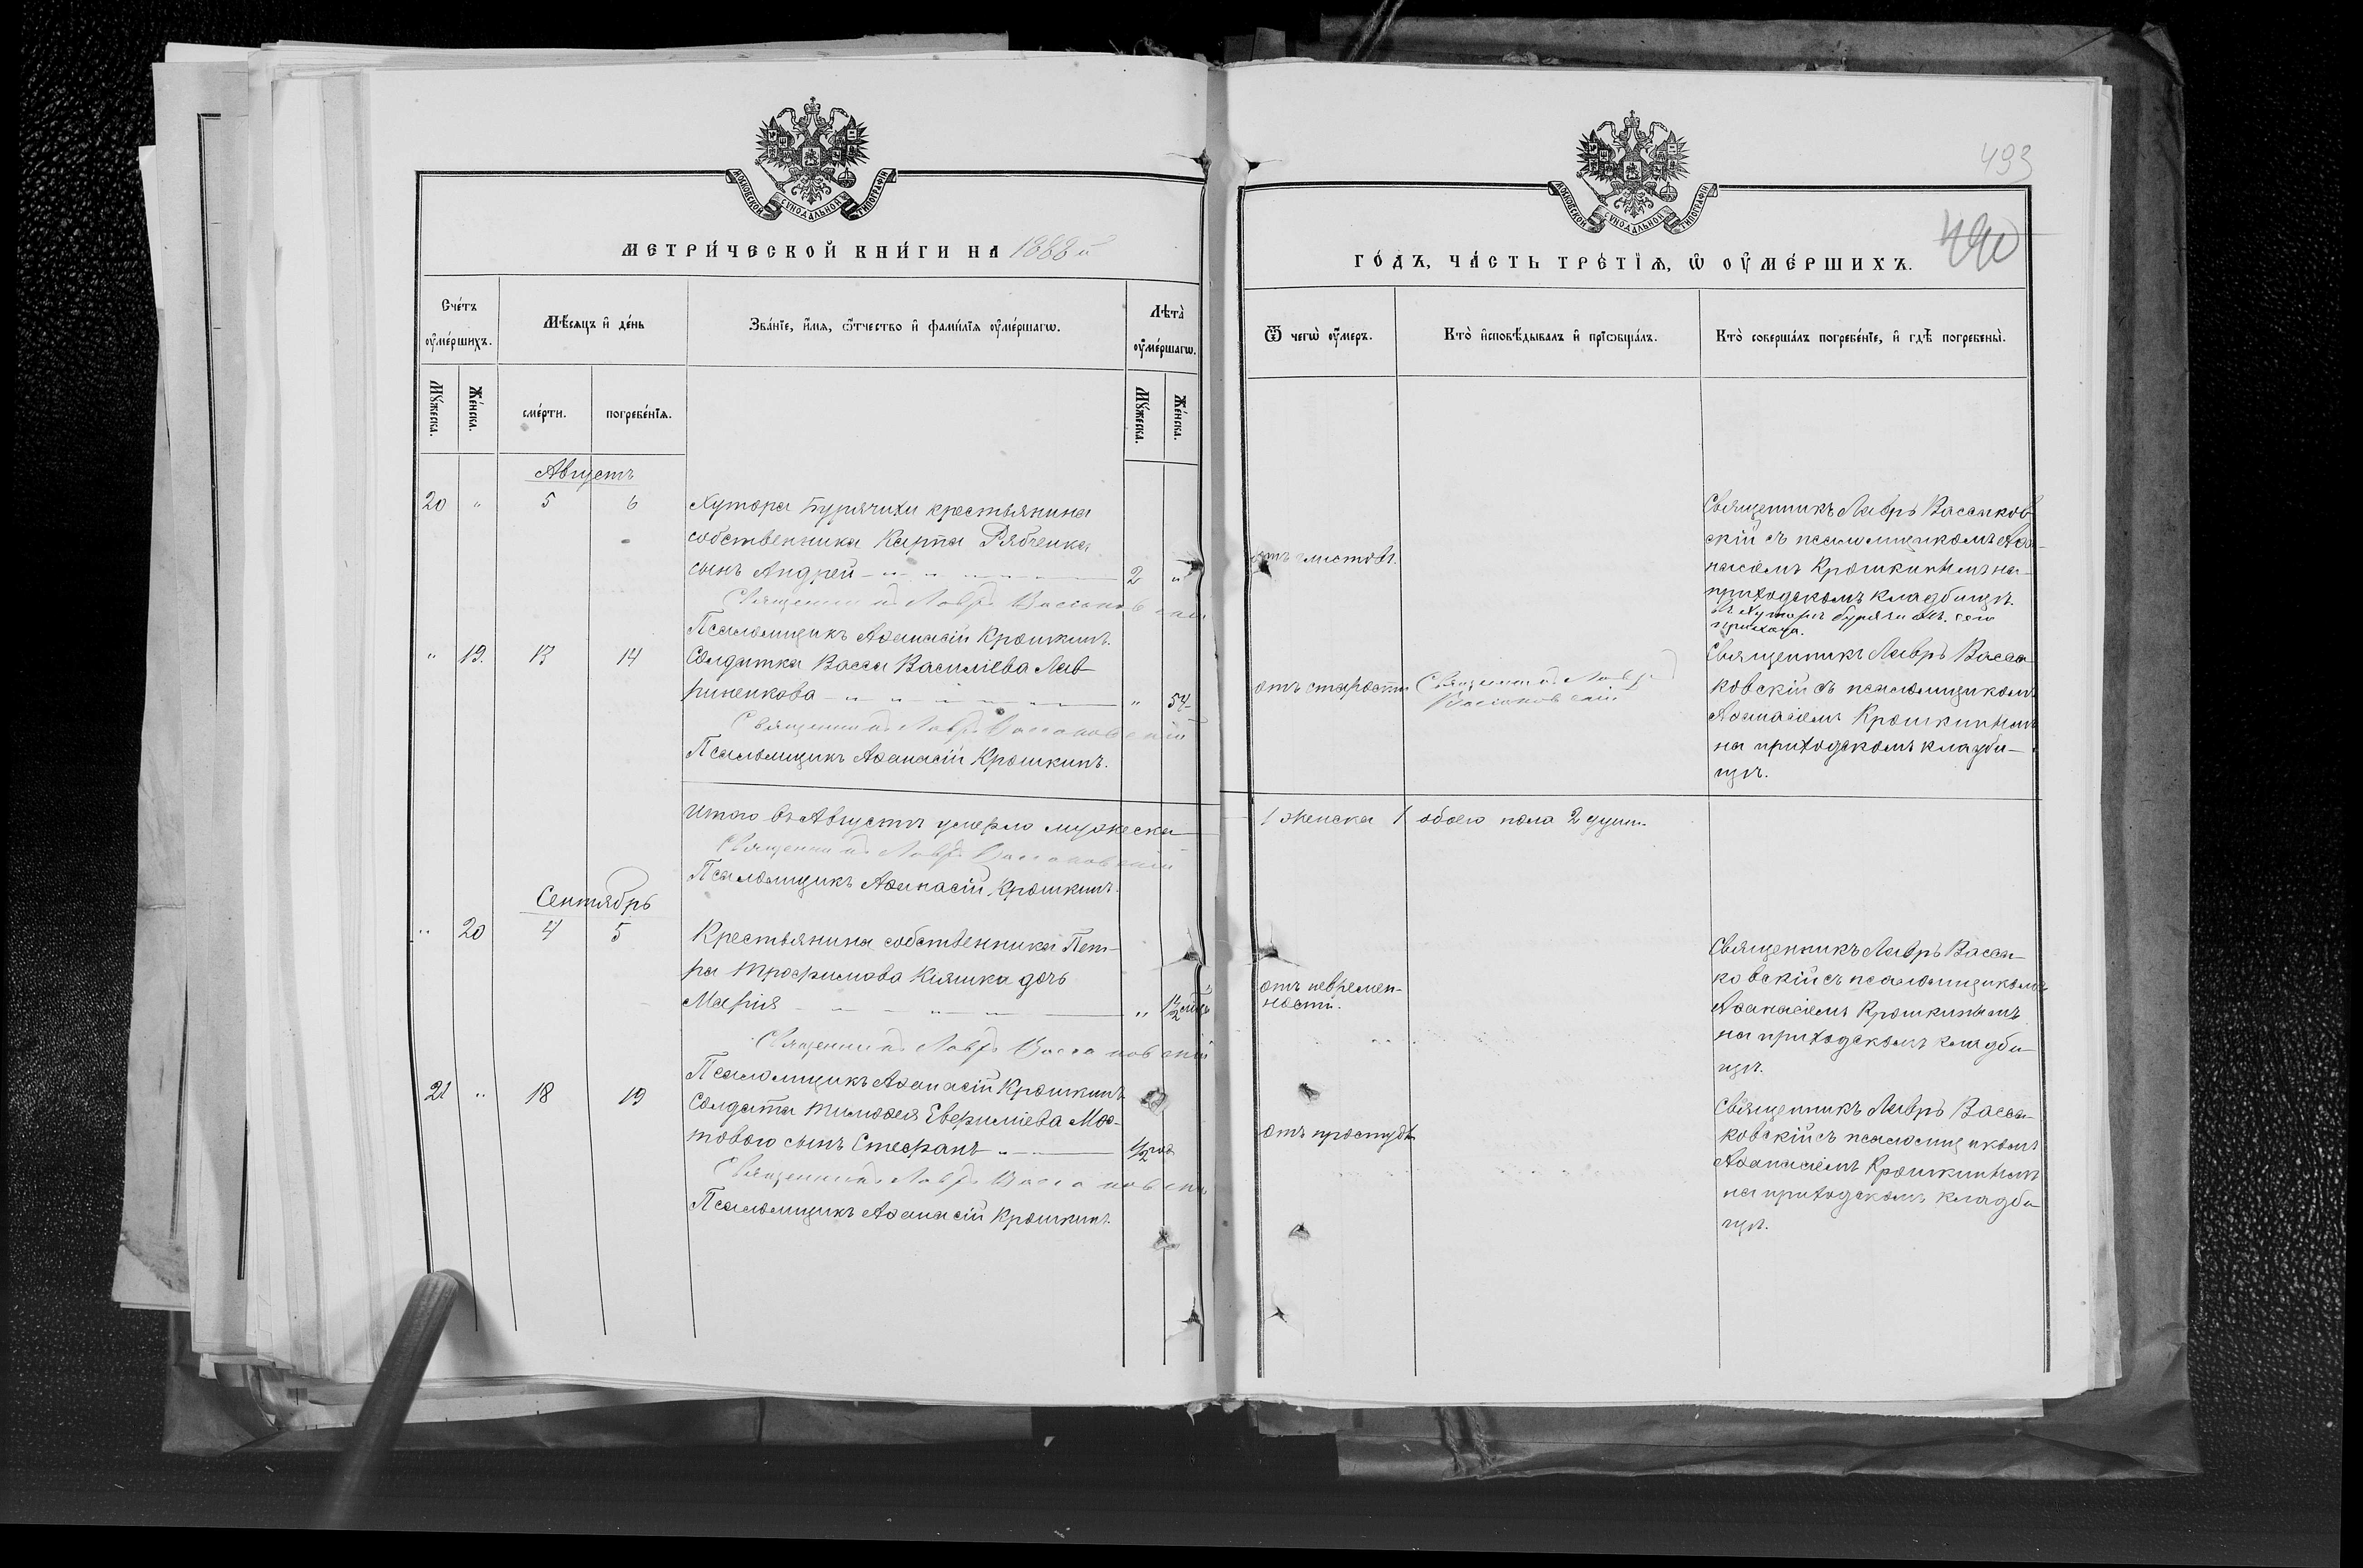 МОСКОВСКОЙ СУНОДАЛЬНОЙ ТИПОГРАФІИ
МЕТРИ́ЧЕСКОЙ КНИ́ГИ НА 1888й
Сче́тъ ᲂу҆ме́ршихъ.
Мѣ́сяцъ и҆ де́нь
Зва́нїе, и҆́мя, ѻ҆́тчество и҆ фами́лїя ᲂу҆ме́ршагѡ.
Лѣта̀ ᲂу҆ме́ршагѡ.
Мꙋ́жеска.
Же́нска.
сме́рти.
погребе́нїя.
Мꙋ́жеска.
Же́нска.
Августъ
20 " 5 6 Хутора Бурячихи крестьянина
собственника Карпа Рябченка
сынъ Андрей 2 "
Священникъ Лавръ Вассаковскій
Псаломщикъ Аѳанасій Крошкинъ.
" 19. 13 14 Солдатка Васса Василіева Лав-
риненкова " 54
Священникъ Лавръ Вассаковскій
Псаломщикъ Аѳанасій Крошкинъ.
Итого въ Августѣ умерло мужеска
Священникъ Лавръ Вассаковскій
Псаломщикъ Аѳанасій Крошкинъ.
Сентябрь
" 20 4 5 Крестьянина собственника Пет-
ра Трофимова Кіяшка дочь
Марія " 1½
Священникъ Лавръ Вассаковскій
Псаломщикъ Аѳанасій Крошкинъ
21 " 18 19 Солдата Тимоѳея
товаго сынъ Стефанъ ½ год
Священникъ Лавръ Вассаковскій
Псаломщикъ Аѳанасій Крошкинъ.
493
490
МОСКОВСКОЙ СУНОДАЛЬНОЙ ТИПОГРАФІИ
ГО́ДЪ, ЧА́СТЬ ТРЕ́ТЇѦ, Ѡ҆ ОУ҆МЕ́РШИХЪ.
Ѿ чегѡ̀ ᲂу҆́меръ.
Кто̀ и҆сповѣ́дывалъ и҆ прїѡбща́лъ.
Кто̀ соверша́лъ погребе́нїе, и҆ гдѣ̀ погребены̀.
отъ глистовъ.
Священникъ Лавръ Вассаков
скій съ псаломщикомъ Аѳа-
насіемъ Крошкинымъ на
приходскомъ кладбищѣ.
въ Хуторѣ сего
прихода.
отъ старости
Священникъ Лавръ
Вассаковскій
Священникъ Лавръ Васса
ковскій съ псаломщикомъ
Аѳанасіемъ Крошкинымъ
на приходскомъ кладби-
щѣ.
1 женска 1 обоего пола 2 души.
отъ невремен-
ности.
Священникъ Лавръ Васса-
ковскій съ псаломщикомъ
Аѳанасіемъ Крошкинымъ
на приходскомъ кладби-
щѣ.
отъ простуды
Священникъ Лавръ Васса-
ковскій съ псаломщикомъ
Аѳанасіемъ Крошкинымъ
на приходскомъ кладби
щѣ.